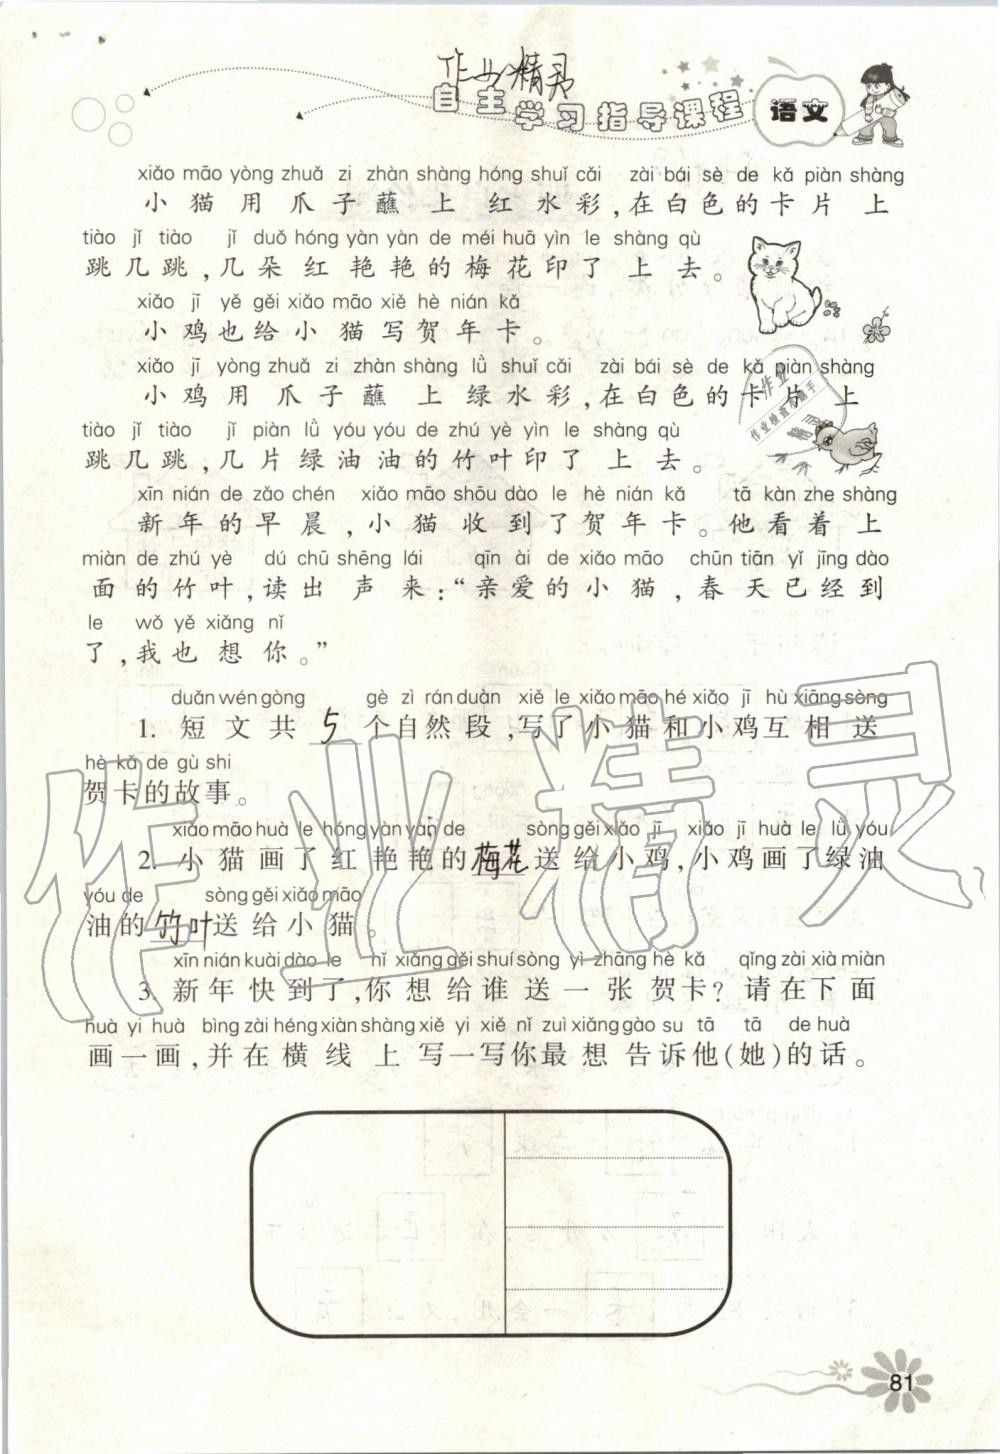 作业精灵
自主学习指导课程 语文
xiǎo māo yòng zhuǎ zi zhàn shàng hóng shuǐ cǎi zài bái sè de kǎ piàn shàng
小猫用爪子蘸上红水彩,在白色的卡片上
tiào jǐ tiào jǐ duǒ hóng yàn yàn de méi huā yìn le shàng qù
跳几跳,几朵红艳艳的梅花印了上去。
xiǎo jī yě gěi xiǎo māo xiě hè nián kǎ
小鸡也给小猫写贺年卡。
xiǎo jī yòng zhuǎ zi zhàn shàng lǜ shuǐ cǎi zài bái sè de kǎ piàn shàng
小鸡用爪子蘸上绿水彩,在白色的卡片上
tiào jǐ tiào jǐ piàn lǜ yóu yóu de zhú yè yìn le shàng qù
跳几跳,几片绿油油的竹叶印了上去。
xīn nián de zǎo chén xiǎo māo shōu dào le hè nián kǎ tā kàn zhe shàng
新年的早晨,小猫收到了贺年卡。他看着上
miàn de zhú yè dú chū shēng lái qīn ài de xiǎo māo chūn tiān yǐ jīng dào
面的竹叶,读出声来:“亲爱的小猫,春天已经到
le wǒ yě xiǎng nǐ
了,我也想你。”
duǎn wén gòng gè zì rán duàn xiě le xiǎo māo hé xiǎo jī hù xiāng sòng
1. 短文共 5 个自然段,写了小猫和小鸡互相送
hè kǎ de gù shi
贺卡的故事。
xiǎo māo huà le hóng yàn yàn de sòng gěi xiǎo jī xiǎo jī huà le lǜ yóu
2. 小猫画了红艳艳的梅花送给小鸡,小鸡画了绿油
yóu de sòng gěi xiǎo māo
油的竹叶送给小猫。
xīn nián kuài dào le nǐ xiǎng gěi shuí sòng yì zhāng hè kǎ qǐng zài xià miàn
3. 新年快到了,你想给谁送一张贺卡?请在下面
huà yi huà bìng zài héng xiàn shàng xiě yi xiě nǐ zuì xiǎng gào su tā tā de huà
画一画,并在横线上写一写你最想告诉他(她)的话。
81